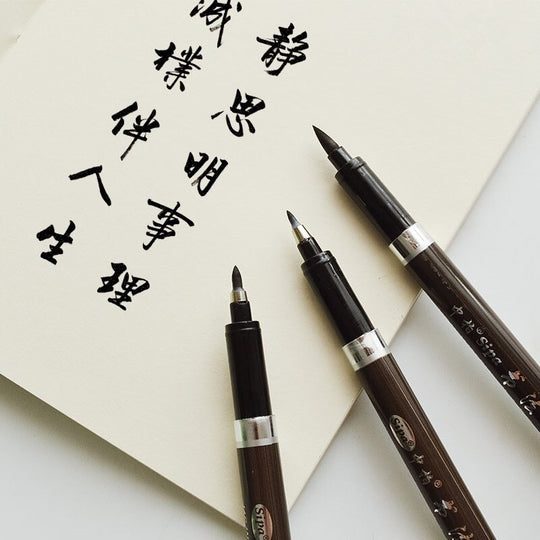 静思明事理
樸伴人生
Sipa
Sipa
Sipa